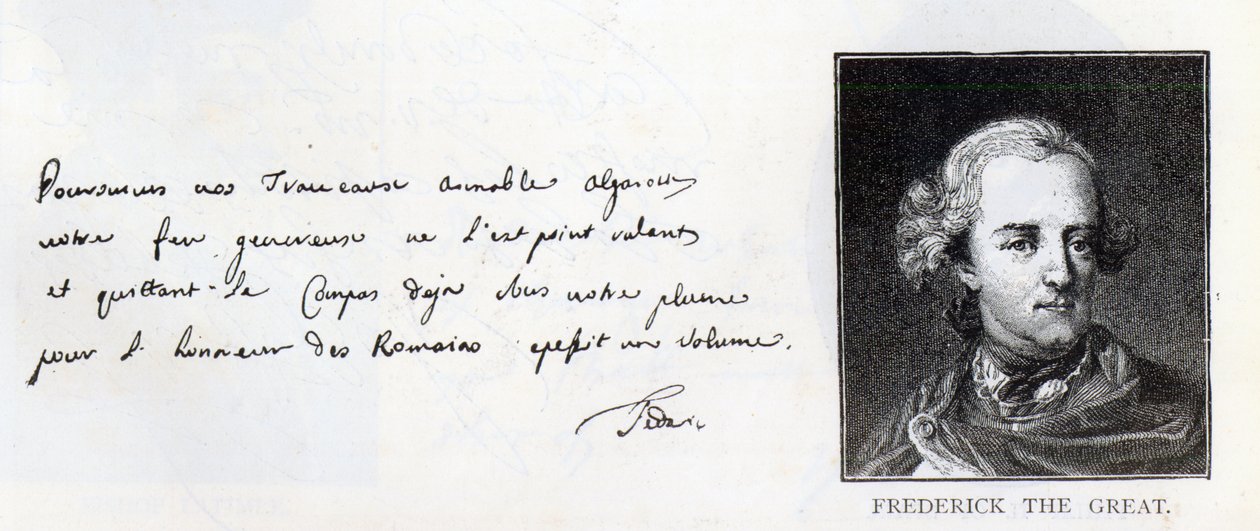 vos Traveaux aimable algarotti
votre feu genereux ne s'est point ralanti
et quittant le Compas deja sous votre plume
pour l'honneur des Romains epessit un volume.
Federic
FREDERICK THE GREAT.